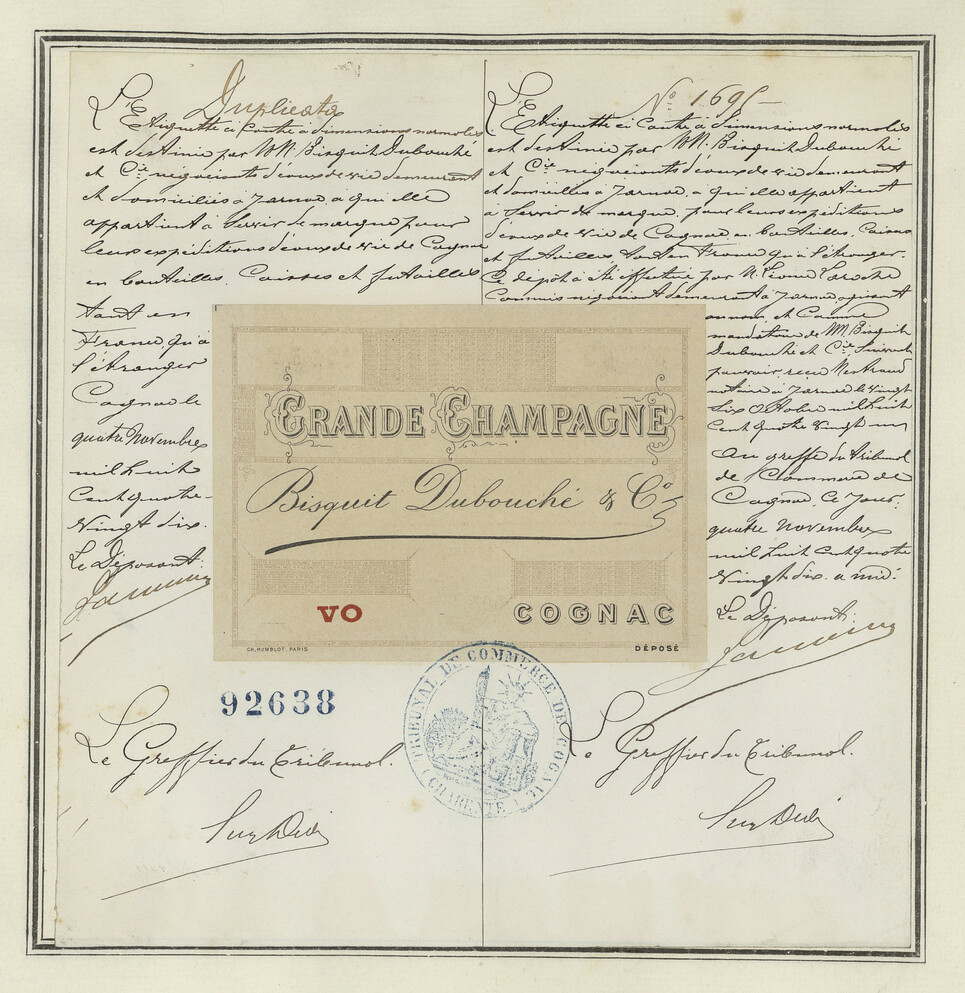 Duplicata
L'Etiquette ci contre à dimensions normales
est destinée par MM. Bisquit Dubouché
et Cie négociants d'eaux de vie demeurant
et domiciliés à Jarnac à qui elle
appartient à servir de marque pour
leurs expéditions d'eaux de vie de Cognac
en bouteilles, Caisses et futailles
tant en
France qu'à
l'étranger
Cognac le
quatre Novembre
mil huit
cent quatre-
Vingt dix.
Le Déposant:
No 1.695
L'Etiquette ci contre à dimensions normales
est destinée par MM. Bisquit Dubouché
et Cie négociants d'eaux de vie demeurant
et domiciliés à Jarnac, à qui elle appartient
à servir de marque, pour leurs expéditions
d'eaux de vie de Cognac en bouteilles, Caisses
et futailles tant en France qu'à l'étranger.
Ce dépôt a été effectué par M. Léonce Laroche
Commis négociant demeurant à Jarnac agissant
au nom et Comme
mandataire de MM. Bisquit
Dubouché et Cie, suivant
pouvoir reçu
notaire à Jarnac le vingt
six Octobre mil huit
cent quatre vingt un
Au greffe du tribunal
de Commerce de
Cognac, Ce jour,
quatre Novembre
mil huit cent quatre
Vingt dix. a midi.
Le Déposant:
GRANDE CHAMPAGNE
Bisquit Dubouché & Co
VO
COGNAC
CH. HUMBLOT PARIS
DÉPOSÉ
92638
TRIBUNAL DE COMMERCE DE COGNAC
(CHARENTE)
Le Greffier du Tribunal.
Le Greffier du Tribunal.